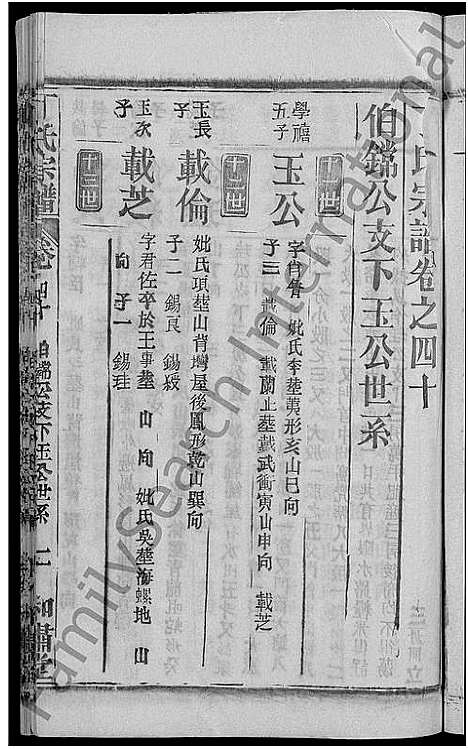 丁氏宗譜卷之四十
伯鐺公支下玉公世系
十一世
學禧五子
玉公
字自脩 妣氏李塟黃形亥山巳向
子三 載倫 載蘭止塟戴武衝寅山申向 載芝
十二世
玉長子
載倫
妣氏項塟山背壪屋後鳳形乾山巽向
子二 錫㒭 錫綬
十二世
玉次子
載芝
字君佐卒於王事塟 山 向 妣氏吳塟海螺地 山
向 子一 錫珪
丁氏宗譜 卷之四十 伯鐺公支下玉公世系 一
FamilySearch International